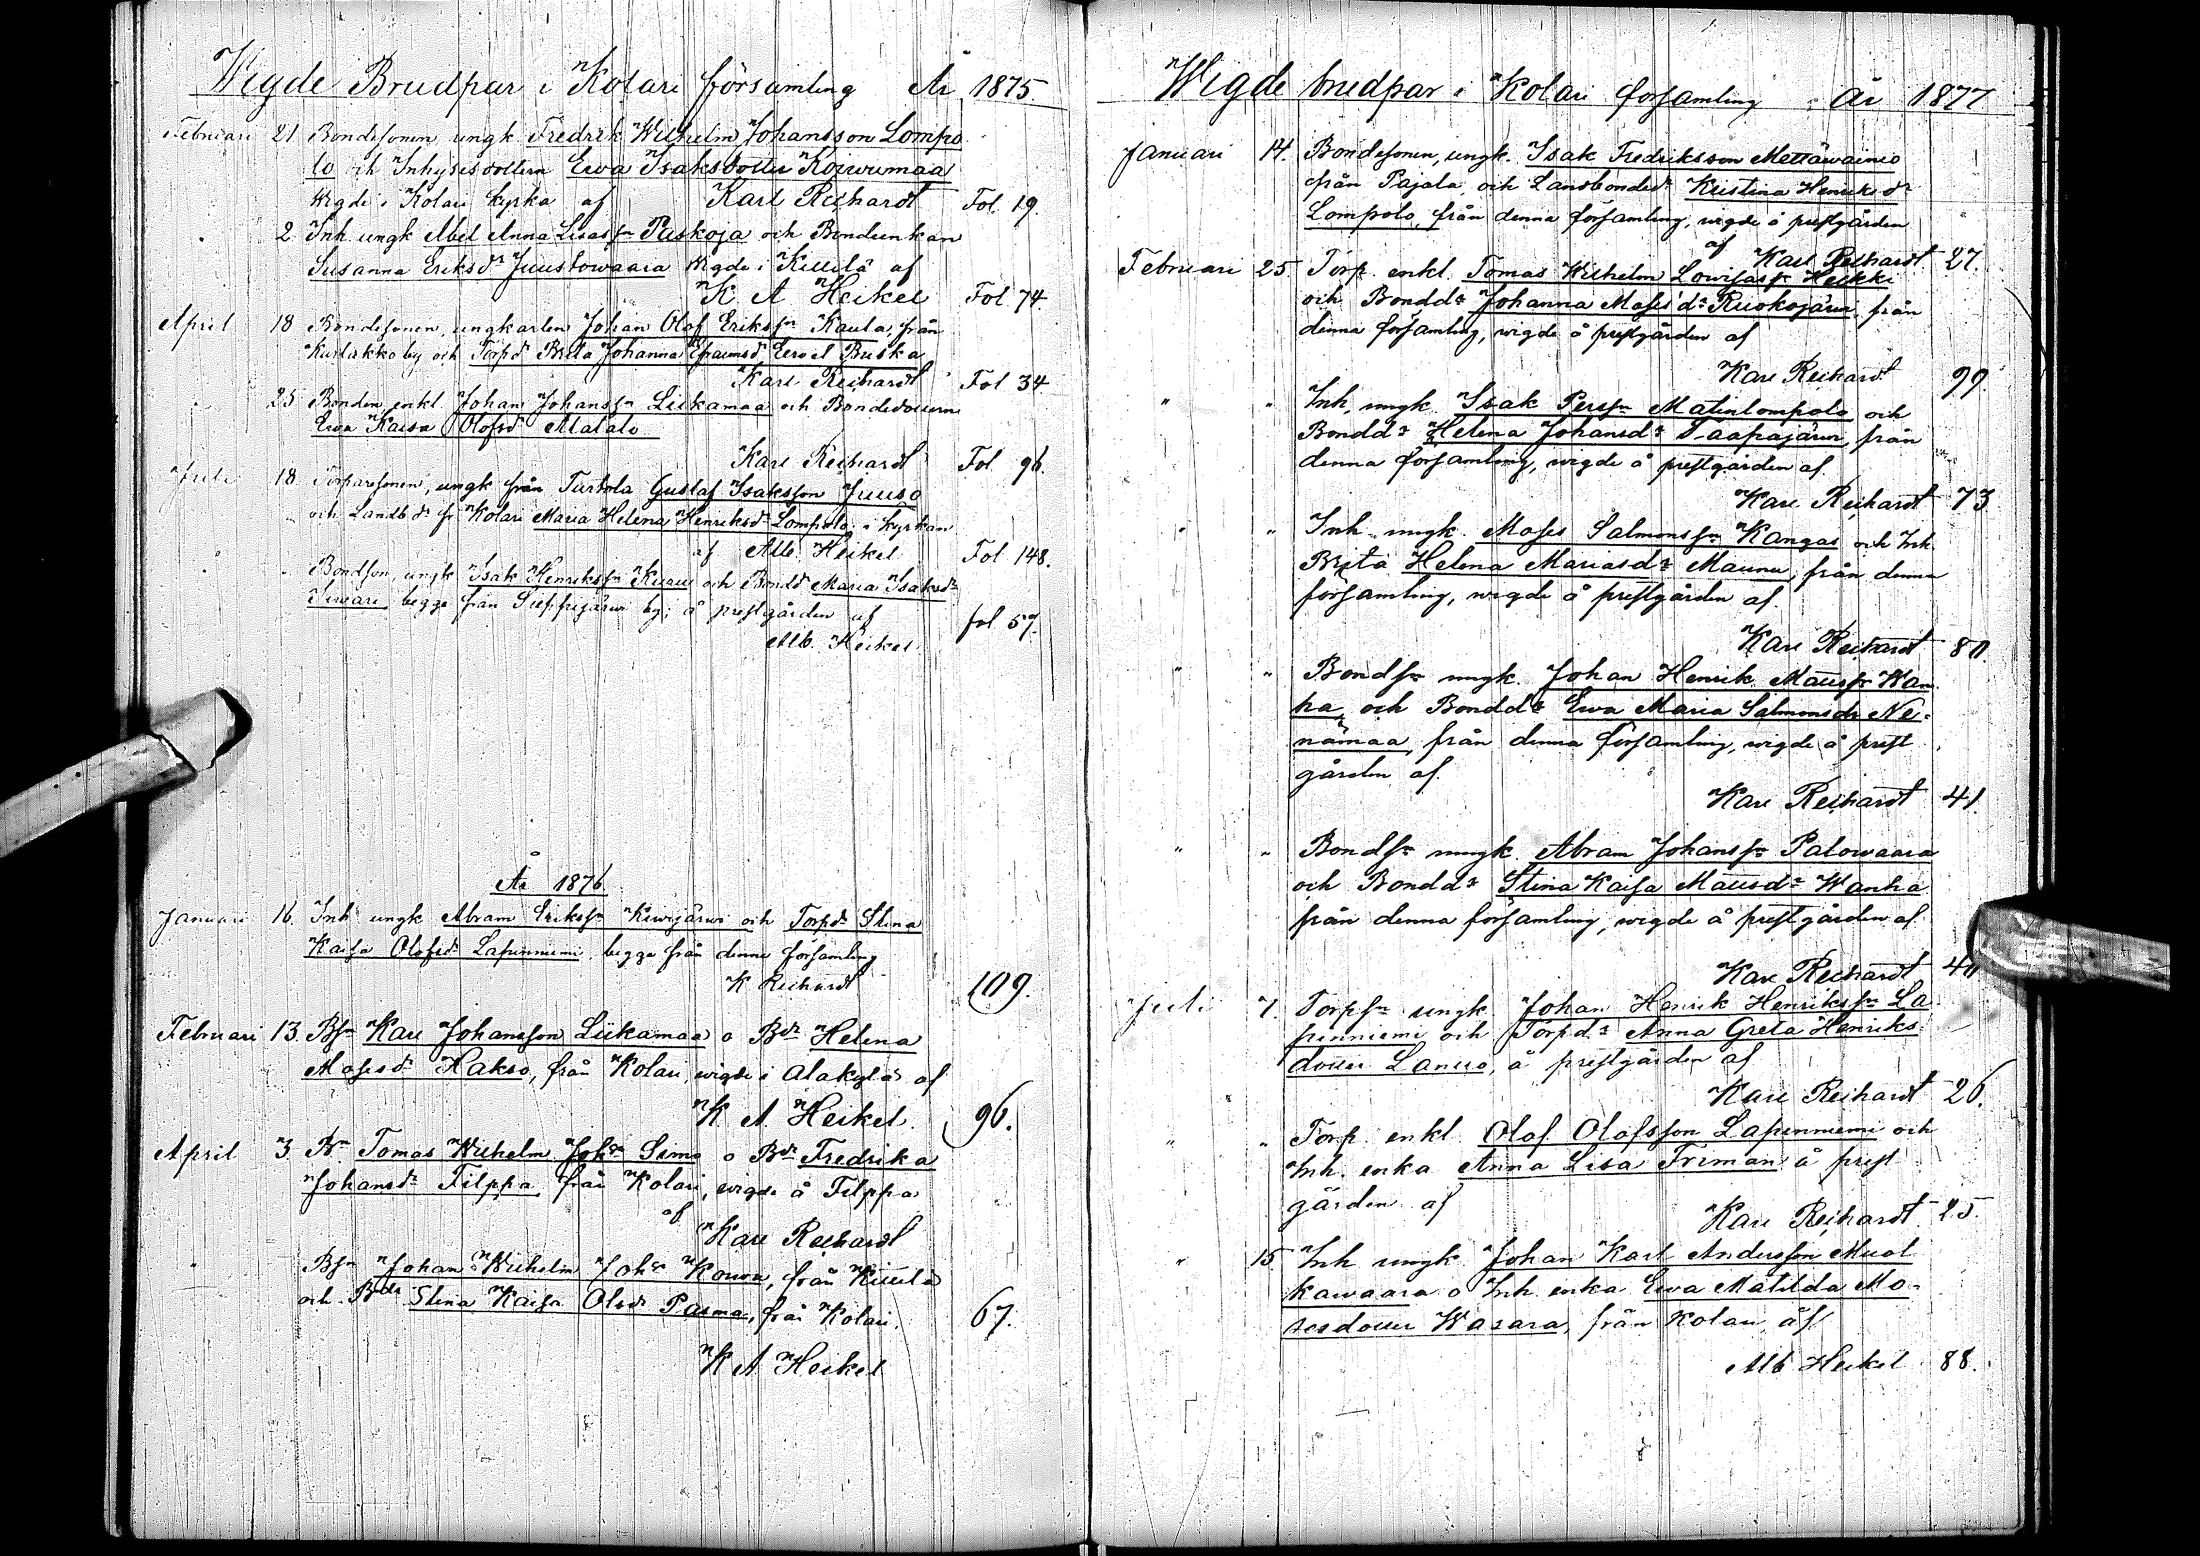 Wigde Brudpar i Kolari församling År 1875.
Februari 21 Bondesonen ungk Fredrik Wilhelm Johansson Lompo
lo och Inhysesdottern Ewa Isaksdotter Koiwumaa
Wigde i Kolari kyrka af Karl Reihardt Fol. 19.
" 2 Inh. ungk Abel Anna Lisas sn Puskoja och Bondeenkan
Susanna Eriksdr Juustowaara Wigde i Kittilä af
K A Heikel Fol 74.
April 18 Bondesonen, ungkarlen Johan Olof Erikssn Kaula, från
Kurtakko by och Torpd Brita Johanna Efraimsd Eervel Buska
Karl Reihardt Fol 34
" 25 Bonden enkl Johan Johanssn Liikamaa och Bondedottern
Ewa Kaisa Olofsd Alatalo
Karl Reihardt Fol 96.
Juli 18 Torparesonen, ungk från Turtola Gustaf Isaksson Juuso
och Landb.dr fr Kolari Maria Helena Henriksdr Lompolo; i kyrkan
af Alb. Heikel Fol 148.
" " Bondson, ungk Isak Henrikssn Kuru och Bondd Maria Isaksdr
begge från Sieppijärwi by; å prestgården af
Alb. Heikel fol 57.
År 1876
Januari 16. Inh ungk Abram Erikssn Kiwijärwi och Torpdr Stina
Kaisa Olofsdr Lapinniemi, begge från denna församling
K Reihardt 109.
Februari 13. Bsn Karl Johansson Liikamaa o Bdr Helena
Mosesdr Hakso, från Kolari, wigde i Alakylä af
K A. Heikel. 96.
April 3 Bn Tomas Wilhelm Johsn Simo o Bdr Fredrika
Johansdr Filppa från Kolari, wigde å Filppa
af Karl Reihardt
" Bsn Johan Wilhelm Johsn Kouva, från Kittilä
och Bdr Stina Kaisa Olsdr Pasma, från Kolari. 67.
K A Heikel
Wigde brudpar i Kolari församling år 1877
Januari 14. Bondesonen, ungk. Isak Fredriksson Mettäwainio
från Pajala, och Lansbonded Kristina Henriksdr
Lompolo, från denna församling, wigde å prestgården
af Karl Reihardt 27.
Februari 25 Torp. enkl. Tomas Wilhelm Lowisas sn Heikki
och Bonddr Johanna Moses dr Ruokojärwi, från
denna församling, wigde å prestgården af
Karl Reihardt 99.
" " Inh. ungk. Isak Perssn Matinlompolo och
Bonddr Helena Johansdr Saapajärwi, från
denna församling, wigde å prestgården af
Karl Reihardt 73
" " Inh. ungk. Moses Salmonssn Kangas och Inh.
Brita Helena Mariasdr Maunu, från denna
församling, wigde å prestgården af.
Karl Reihardt 80.
" " Bondsn ungk. Johan Henrik Matts sn Wan
ha, och Bonddr Ewa Maria Salmonsdr Ne-
nämaa, från denna församling, wigde å prest
gården af.
Karl Reihardt 41.
" " Bondsn ungk. Abram Johanssn Palowaara
och Bonddr Stina Kaisa Mattsdr Wanha
från denna församling, wigde å prestgården af.
Karl Reihardt
Juli 1. Torpsn ungk Johan Henrik Henrikssn La
pinniemi och Torpdr Anna Greta Henriks
dotter Lanto, å prestgården af
Karl Reihardt 26.
" " Torp. enkl. Olof Olofsson Lapinniemi och
Inh. enka Anna Lisa Friman å prest
gården af
Karl Reihardt. 25.
" 15 Inh ungk Johan Karl Andersson Muot
kawaara o Inh. enka Ewa Matilda Mo-
sesdotter Wasara, från Kolari af
Alb Heikel 88.